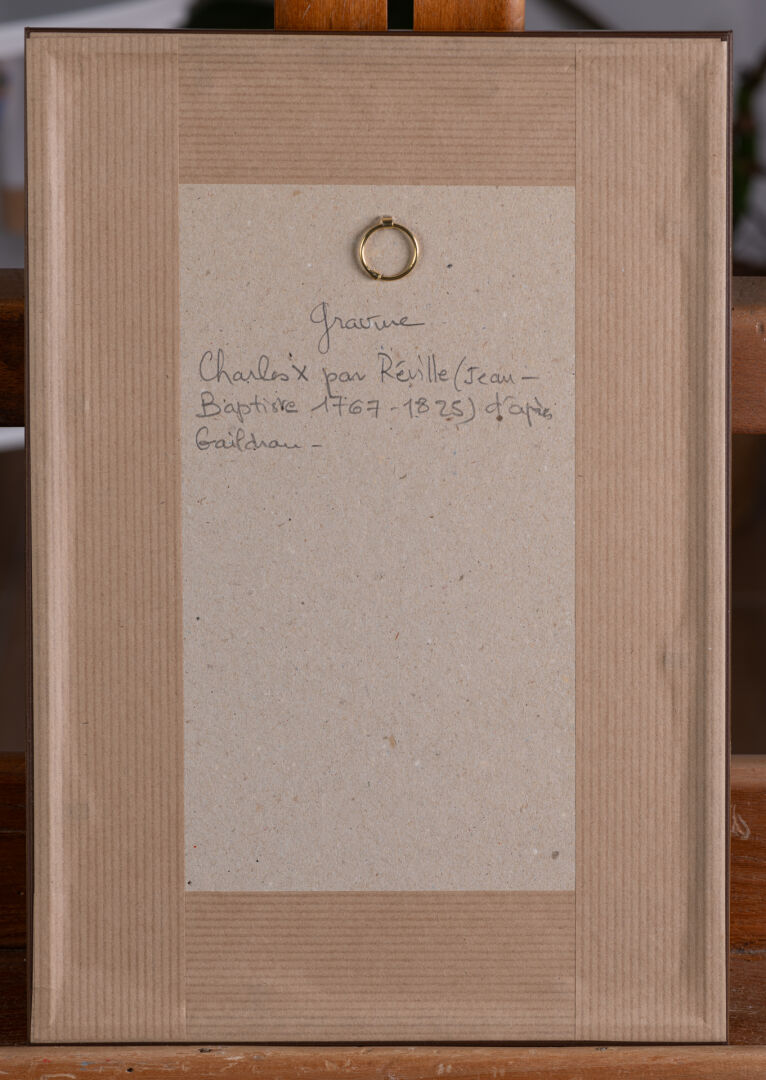 Gravure
Charles X par Réville (Jean-
Baptiste 1767-1825) d'après
Gaildrau -